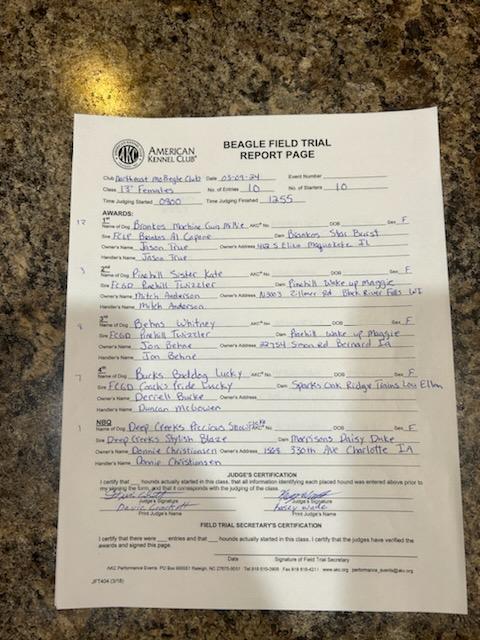 AKC
AMERICAN
KENNEL CLUB®
BEAGLE FIELD TRIAL
REPORT PAGE
Club Northeast Mo Beagle Club Date 03-09-24 Event Number
Class 13" Females No. of Entries 10 No. of Starters 10
Time Judging Started 0900 Time Judging Finished 1255
AWARDS:
12
1st
Name of Dog Brankos Machine Gun Millie AKC® No. DOB Sex F
Sire FCGD Brankos Al Capone Dam Brankos Star Burst
Owner's Name Jason True Owner's Address S Eliza Maquoketa, IL
Handler's Name Jason True
3
2nd
Name of Dog Pinehill Sister Kate AKC® No. DOB Sex F
Sire FCGD Pinehill Twizzler Dam Pinehill Wake up Maggie
Owner's Name Mitch Anderson Owner's Address N3003 Zillmer Rd Black River Falls WI
Handler's Name Mitch Anderson
8
3rd
Name of Dog Behns Whitney AKC® No. DOB Sex F
Sire FCGD Pinehill Twizzler Dam Pinehill Wake up Maggie
Owner's Name Jon Behne Owner's Address 22754 Simon Rd Bernard Ia
Handler's Name Jon Behne
7
4th
Name of Dog Burks Bootleg Lucky AKC® No. DOB Sex F
Sire FCGD Cooks Pride Lucky Dam Sparks Oak Ridge Trains Lou Ellen
Owner's Name Derrell Burke Owner's Address
Handler's Name Duncan McGowen
1
NBQ
Name of Dog Deep Creeks Precious Snowflake AKC® No. DOB Sex F
Sire Deep Creeks Stylish Blaze Dam Morrisons Daisy Duke
Owner's Name Donnie Christiansen Owner's Address 1508 330th Ave Charlotte IA
Handler's Name Donnie Christiansen
JUDGE'S CERTIFICATION
I certify that hounds actually started in this class, that all information identifying each placed hound was entered above prior to
my signing the form, and that it corresponds with the judging of the class.
Judge's Signature Judge's Signature
David Crockett Kasey Wade
Print Judge's Name Print Judge's Name
FIELD TRIAL SECRETARY'S CERTIFICATION
I certify that there were entries and that hounds actually started in this class. I certify that the judges have verified the
awards and signed this page.
Date Signature of Field Trial Secretary
AKC Performance Events PO Box 900051 Raleigh, NC 27675-9051 Tel 919 816-3908 Fax 919 816-4211 www.akc.org performance_events@akc.org
JFT404 (3/18)